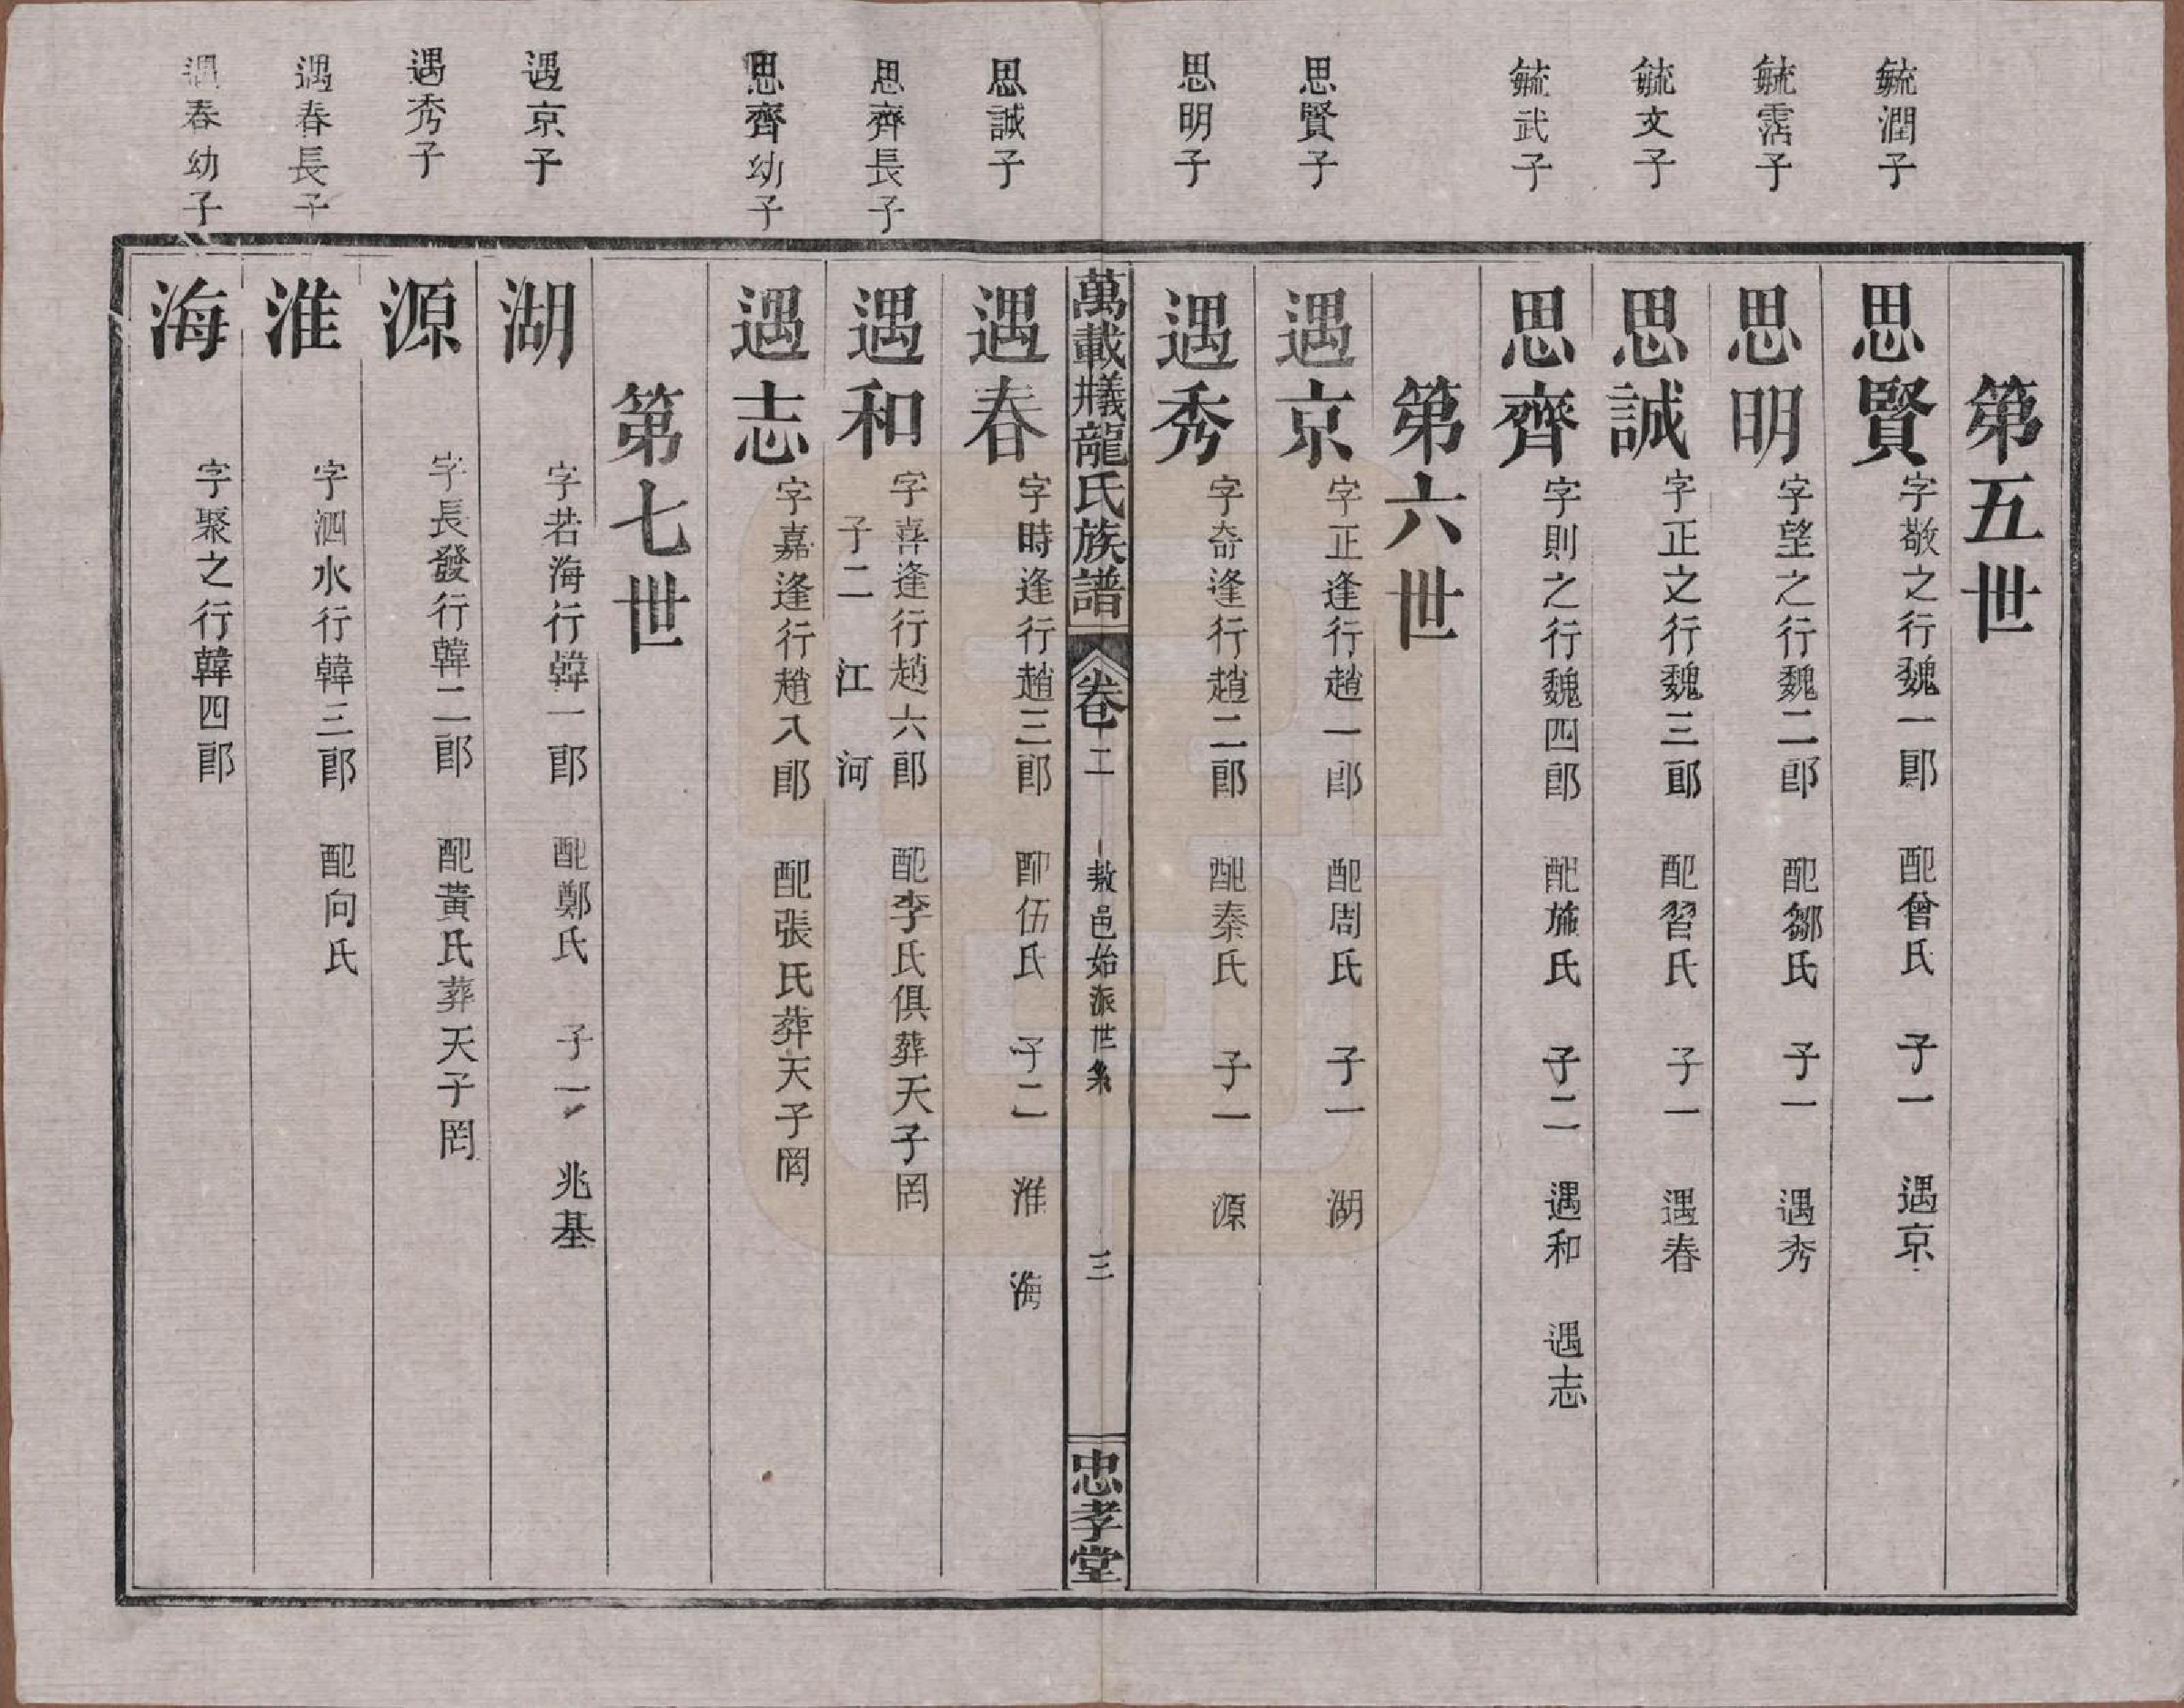 第五世
毓潤子
思賢 字敬之行魏一郎 配曾氏 子一 遇京
毓霑子
思明 字望之行魏二郎 配鄒氏 子一 遇秀
毓文子
思誠 字正之行魏三郎 配習氏 子一 遇春
毓武子
思齊 字則之行魏四郎 配施氏 子二 遇和 遇志
第六世
思賢子
遇京 字正逢行趙一郎 配周氏 子一 湖
思明子
遇秀 字奇逢行趙二郎 配秦氏 子一 源
萬載㵎龍氏族譜 卷二 敖邑始派世系 三 忠孝堂
思誠子
遇春 字時逢行趙三郎 配伍氏 子二 淮 海
思齊長子
遇和 字喜逢行趙六郎 配李氏俱葬天子罔
子二 江 河
思齊幼子
遇志 字嘉逢行趙八郎 配張氏葬天子罔
第七世
遇京子
湖 字若海行韓一郎 配鄭氏 子一 兆基
遇秀子
源 字長發行韓二郎 配黃氏葬天子罔
遇春長子
淮 字泗水行韓三郎 配向氏
遇春幼子
海 字聚之行韓四郎